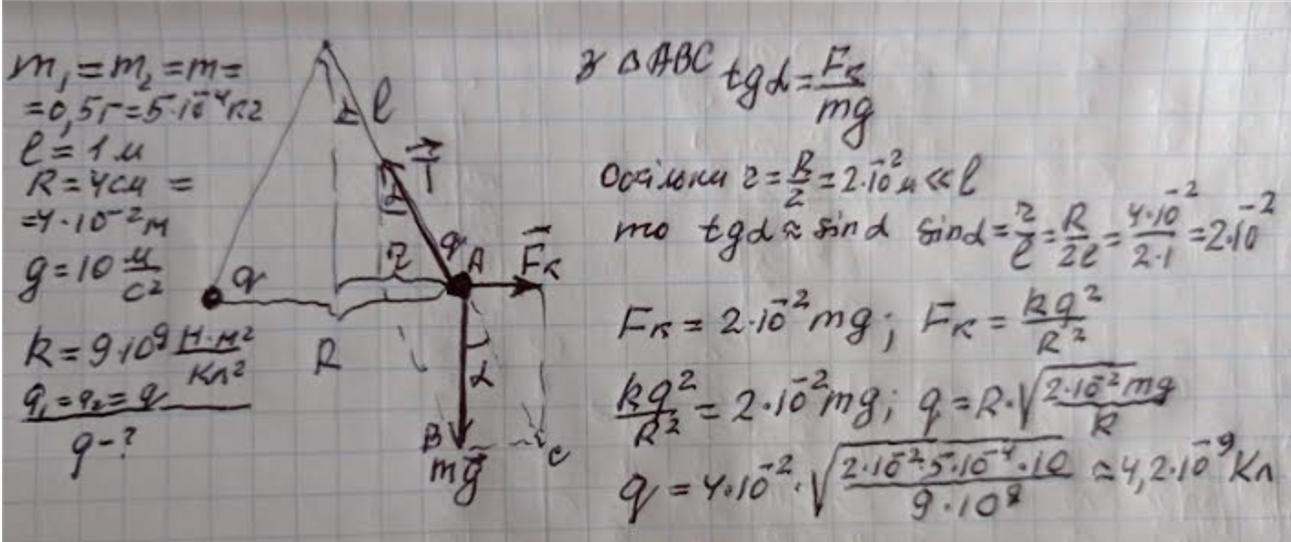 m₁=m₂=m=
=0,5г=5·10⁻⁴кг
l=1м
R=4см=
=4·10⁻²м
g=10 м/с²
k=9·10⁹ Н·м²/Кл²
q₁=q₂=q
q-?
α l
T⃗
α
q A F⃗к
r
q
R
α
B C
mg⃗
З △ABC tgα=Fк/mg
Оскільки r=R/2=2·10⁻²м≪l
то tgα≈sinα sinα=r/l=R/2l=4·10⁻²/2·1=2·10⁻²
Fк=2·10⁻²mg; Fк=kq²/R²
kq²/R²=2·10⁻²mg; q=R·√(2·10⁻²mg/k)
q=4·10⁻²·√(2·10⁻²·5·10⁻⁴·10/9·10⁹)≈4,2·10⁻⁹Кл